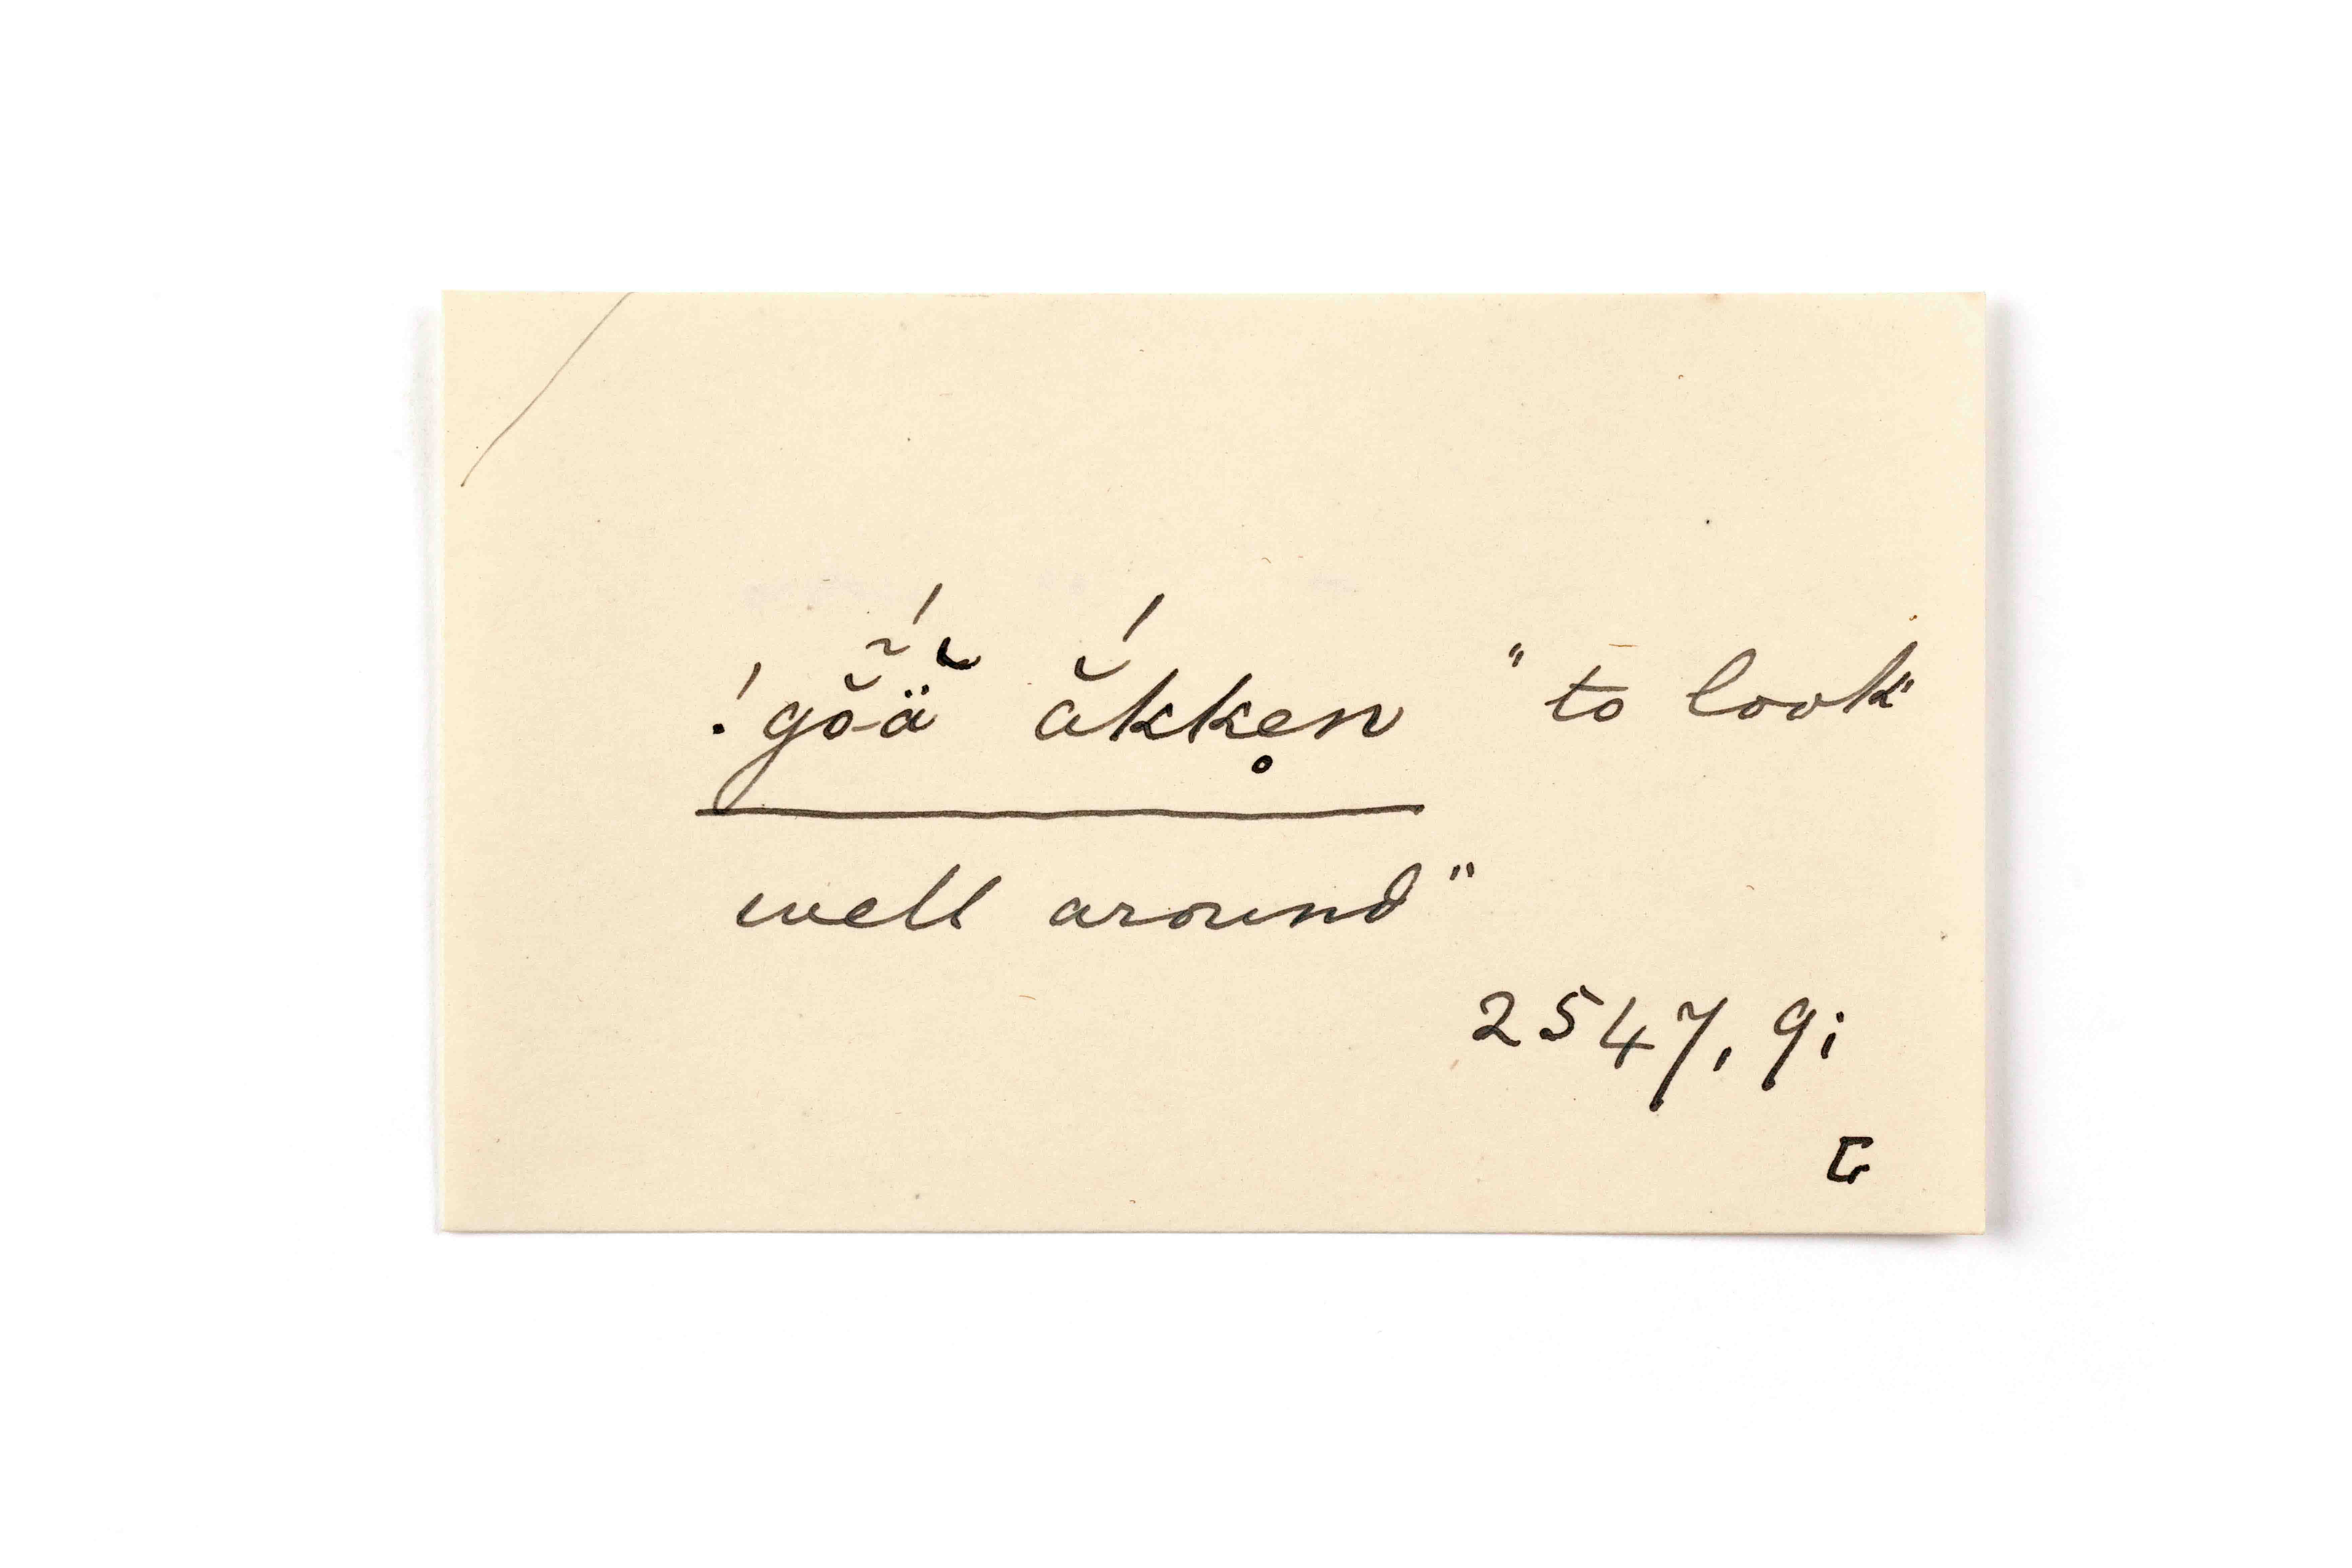 !gŏ̃-ä̆́ ắkke̥n "to look"
well around"
2547, 9;